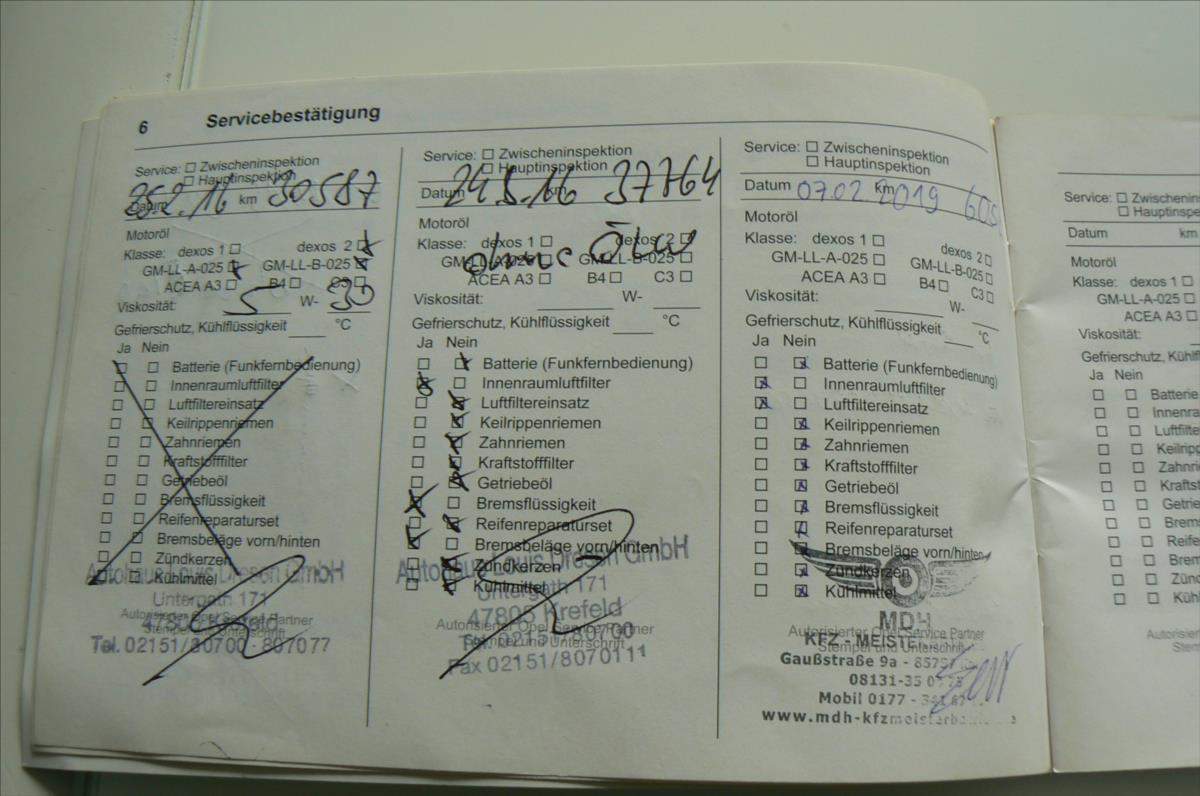 6 Servicebestätigung
Service: ☐ Zwischeninspektion
☐ Hauptinspektion
Datum 25 2. 16 km 30587
Motoröl
Klasse: dexos 1 ☐ dexos 2 ☒
GM-LL-A-025 ☒ GM-LL-B-025 ☒
ACEA A3 ☐ B4 ☐ C3 ☐
Viskosität: 5 W- 30
Gefrierschutz, Kühlflüssigkeit ____ °C
Ja Nein
☐ ☐ Batterie (Funkfernbedienung)
☐ ☐ Innenraumluftfilter
☐ ☐ Luftfiltereinsatz
☐ ☐ Keilrippenriemen
☐ ☐ Zahnriemen
☐ ☐ Kraftstofffilter
☐ ☐ Getriebeöl
☐ ☐ Bremsflüssigkeit
☐ ☐ Reifenreparaturset
☐ ☐ Bremsbeläge vorn/hinten
☐ ☐ Zündkerzen
☐ ☐ Kühlmittel
Autohaus Louis Dresen GmbH
Untergath 171
Autorisierter Opel Service Partner
47805 Krefeld
Stempel und Unterschrift
Tel. 02151/80700 - 807077
Service: ☐ Zwischeninspektion
☐ Hauptinspektion
Datum 24.5.16 km 37764
Motoröl
Klasse: dexos 1 ☐ dexos 2 ☐
GM-LL-A-025 ☐ GM-LL-B-025 ☐
ohne Ölw
ACEA A3 ☐ B4 ☐ C3 ☐
Viskosität: ____ W- ____
Gefrierschutz, Kühlflüssigkeit ____ °C
Ja Nein
☐ ☒ Batterie (Funkfernbedienung)
☒ ☐ Innenraumluftfilter
☐ ☒ Luftfiltereinsatz
☐ ☒ Keilrippenriemen
☐ ☒ Zahnriemen
☐ ☒ Kraftstofffilter
☐ ☒ Getriebeöl
☒ ☐ Bremsflüssigkeit
☐ ☒ Reifenreparaturset
☒ ☐ Bremsbeläge vorn/hinten
☐ ☒ Zündkerzen
☐ ☒ Kühlmittel
Autohaus Louis Dresen GmbH
Untergath 171
47805 Krefeld
Autorisierter Opel Service Partner
Tel. 02151/80700
Stempel und Unterschrift
Fax 02151/8070111
Service: ☐ Zwischeninspektion
☐ Hauptinspektion
Datum 07.02 km 2019 605
Motoröl
Klasse: dexos 1 ☐ dexos 2 ☐
GM-LL-A-025 ☐ GM-LL-B-025 ☐
ACEA A3 ☐ B4 ☐ C3 ☐
Viskosität: ____ W- ____
Gefrierschutz, Kühlflüssigkeit ____ °C
Ja Nein
☐ ☒ Batterie (Funkfernbedienung)
☒ ☐ Innenraumluftfilter
☒ ☐ Luftfiltereinsatz
☐ ☒ Keilrippenriemen
☐ ☒ Zahnriemen
☐ ☒ Kraftstofffilter
☐ ☒ Getriebeöl
☐ ☒ Bremsflüssigkeit
☐ ☒ Reifenreparaturset
☐ ☒ Bremsbeläge vorn/hinten
☐ ☒ Zündkerzen
☐ ☒ Kühlmittel
MDH
Autorisierter Opel Service Partner
KFZ - MEISTE
Stempel und Unterschrift
Gaußstraße 9a - 8575
08131-35 0
Mobil 0177 -
www.mdh-kfzmeisterb
Service: ☐ Zwischenins
☐ Hauptinspe
Datum km
Motoröl
Klasse: dexos 1 ☐
GM-LL-A-025 ☐
ACEA A3 ☐
Viskosität:
Gefrierschutz, Kühlflüs
Ja Nein
☐ ☐ Batterie
☐ ☐ Innenra
☐ ☐ Luftfilte
☐ ☐ Keilripp
☐ ☐ Zahnri
☐ ☐ Kraftst
☐ ☐ Getrie
☐ ☐ Brems
☐ ☐ Reife
☐ ☐ Brem
☐ ☐ Zünd
☐ ☐ Kühl
Autorisiert
Stem